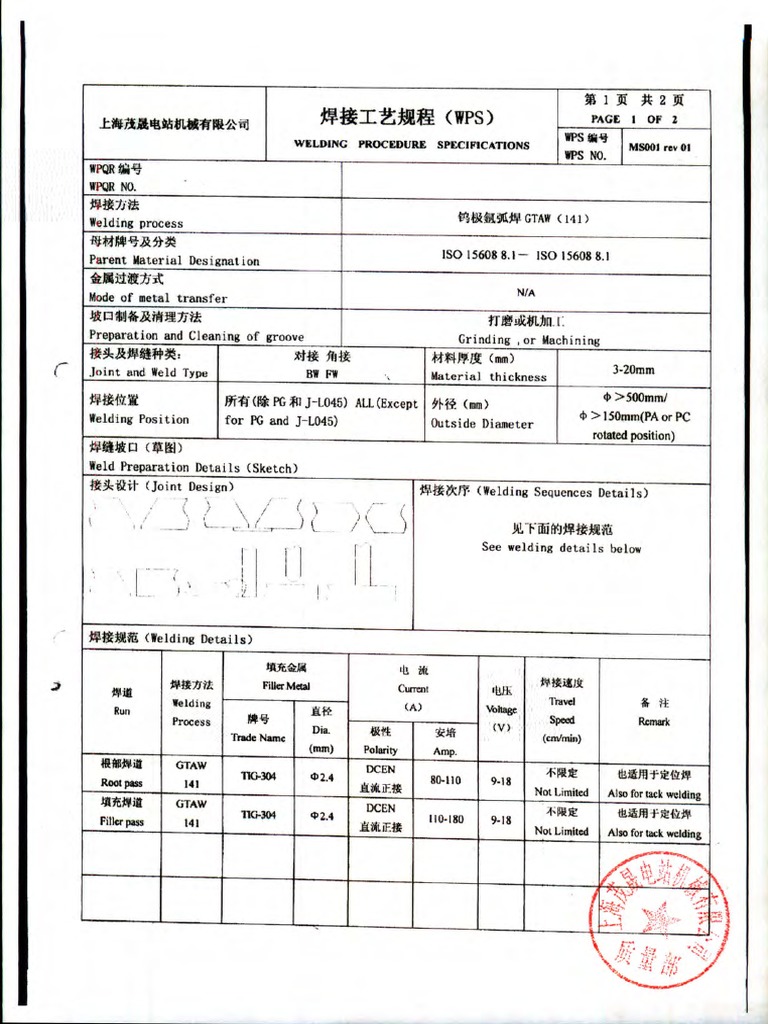 上海茂晟电站机械有限公司
焊接工艺规程（WPS）
WELDING PROCEDURE SPECIFICATIONS
第 1 页 共 2 页
PAGE 1 OF 2
WPS 编号
WPS NO.
MS001 rev 01
WPQR 编号
WPQR NO.
焊接方法
Welding process
钨极氩弧焊 GTAW（141）
母材牌号及分类
Parent Material Designation
ISO 15608 8.1— ISO 15608 8.1
金属过渡方式
Mode of metal transfer
N/A
坡口制备及清理方法
Preparation and Cleaning of groove
打磨或机加工
Grinding ,or Machining
接头及焊缝种类:
Joint and Weld Type
对接 角接
BW FW
材料厚度（mm）
Material thickness
3-20mm
焊接位置
Welding Position
所有(除 PG 和 J-L045) ALL(Except
for PG and J-L045)
外径（mm）
Outside Diameter
Φ＞500mm/
Φ＞150mm(PA or PC
rotated position)
焊缝坡口（草图）
Weld Preparation Details（Sketch）
接头设计（Joint Design）
焊接次序（Welding Sequences Details）
见下面的焊接规范
See welding details below
焊接规范（Welding Details）
焊道
Run
焊接方法
Welding
Process
填充金属
Filler Metal
牌号
Trade Name
直径
Dia.
(mm)
电 流
Current
（A）
极性
Polarity
安培
Amp.
电压
Voltage
（V）
焊接速度
Travel
Speed
(cm/min)
备 注
Remark
根部焊道
Root pass
GTAW
141
TIG-304
Φ2.4
DCEN
直流正接
80-110
9-18
不限定
Not Limited
也适用于定位焊
Also for tack welding
填充焊道
Filler pass
GTAW
141
TIG-304
Φ2.4
DCEN
直流正接
110-180
9-18
不限定
Not Limited
也适用于定位焊
Also for tack welding
上海茂晟电站机械有限公司
质量部